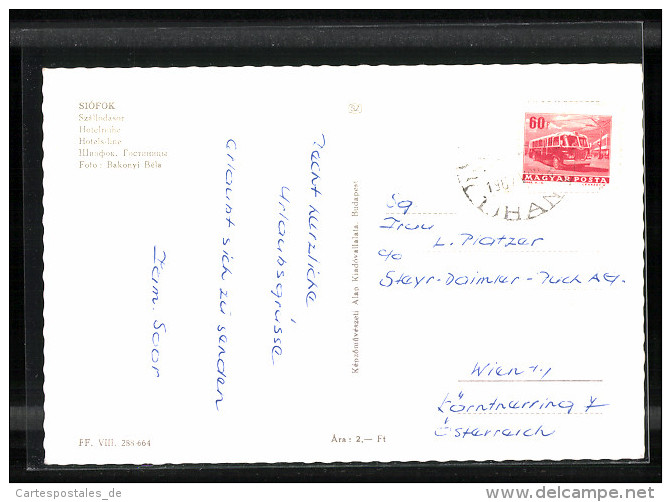 SIÓFOK
Szállodasor
Hotelreihe
Hotels-line
Шиофок. Гостиницы
Foto: Bakonyi Béla
Recht herzliche
Urlaubsgrüsse
erlaubt sich zu senden
Fam. Soor
FF. VIII. 288-664
Ára: 2,— Ft
Képzőművészeti Alap Kiadóvállalata, Budapest
60f
MAGYAR POSTA
TIHAN
Sg
Frau
L. Platzer
c/o
Steyr-Daimler-Puch AG.
Wien
Kärntnerring 7
Österreich
Cartespostales_de
delcampe.net